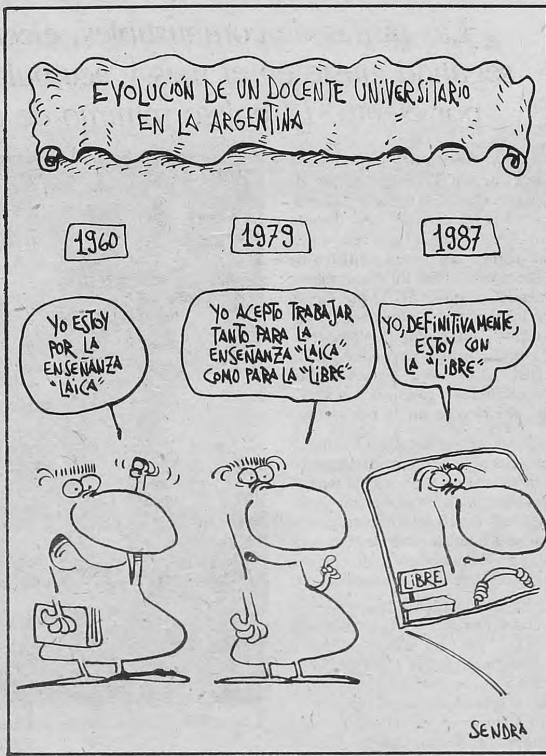 EVOLUCIÓN DE UN DOCENTE UNIVERSITARIO
EN LA ARGENTINA
1960
1979
1987
YO ESTOY
POR LA
ENSEÑANZA
"LAICA"
YO ACEPTO TRABAJAR
TANTO PARA LA
ENSEÑANZA "LAICA"
COMO PARA LA "LIBRE"
YO, DEFINITIVAMENTE,
ESTOY CON
LA "LIBRE"
LIBRE
SENDRA